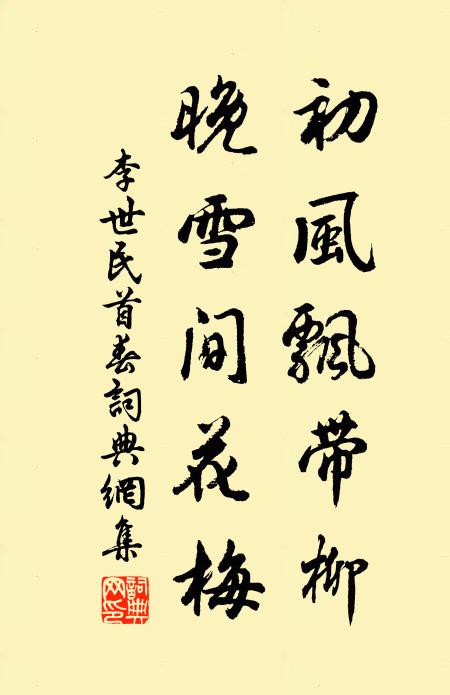 初風飄帶柳
晚雪間花梅
李世民首春詞典網集
詞典網印